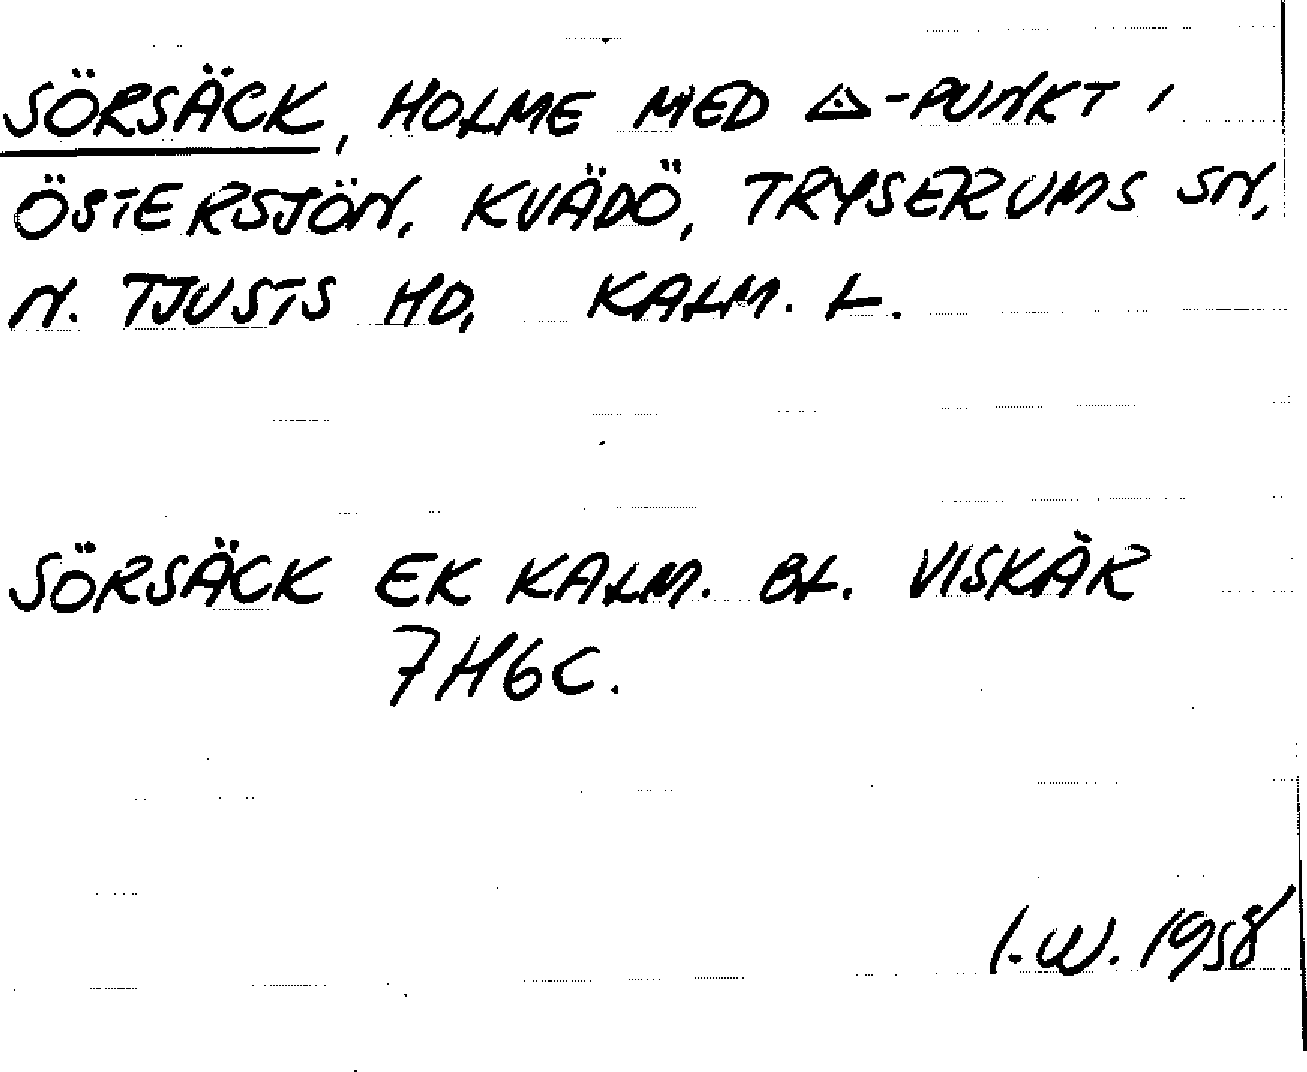 SÖRSÄCK, HOLME MED △-PUNKT I
ÖSTERSJÖN, KVÄDÖ, TRYSERUMS SN,
N. TJUSTS HD, KALM. L.
SÖRSÄCK EK KALM. BL. VISKÄR
7H6C.
I.W. 1958